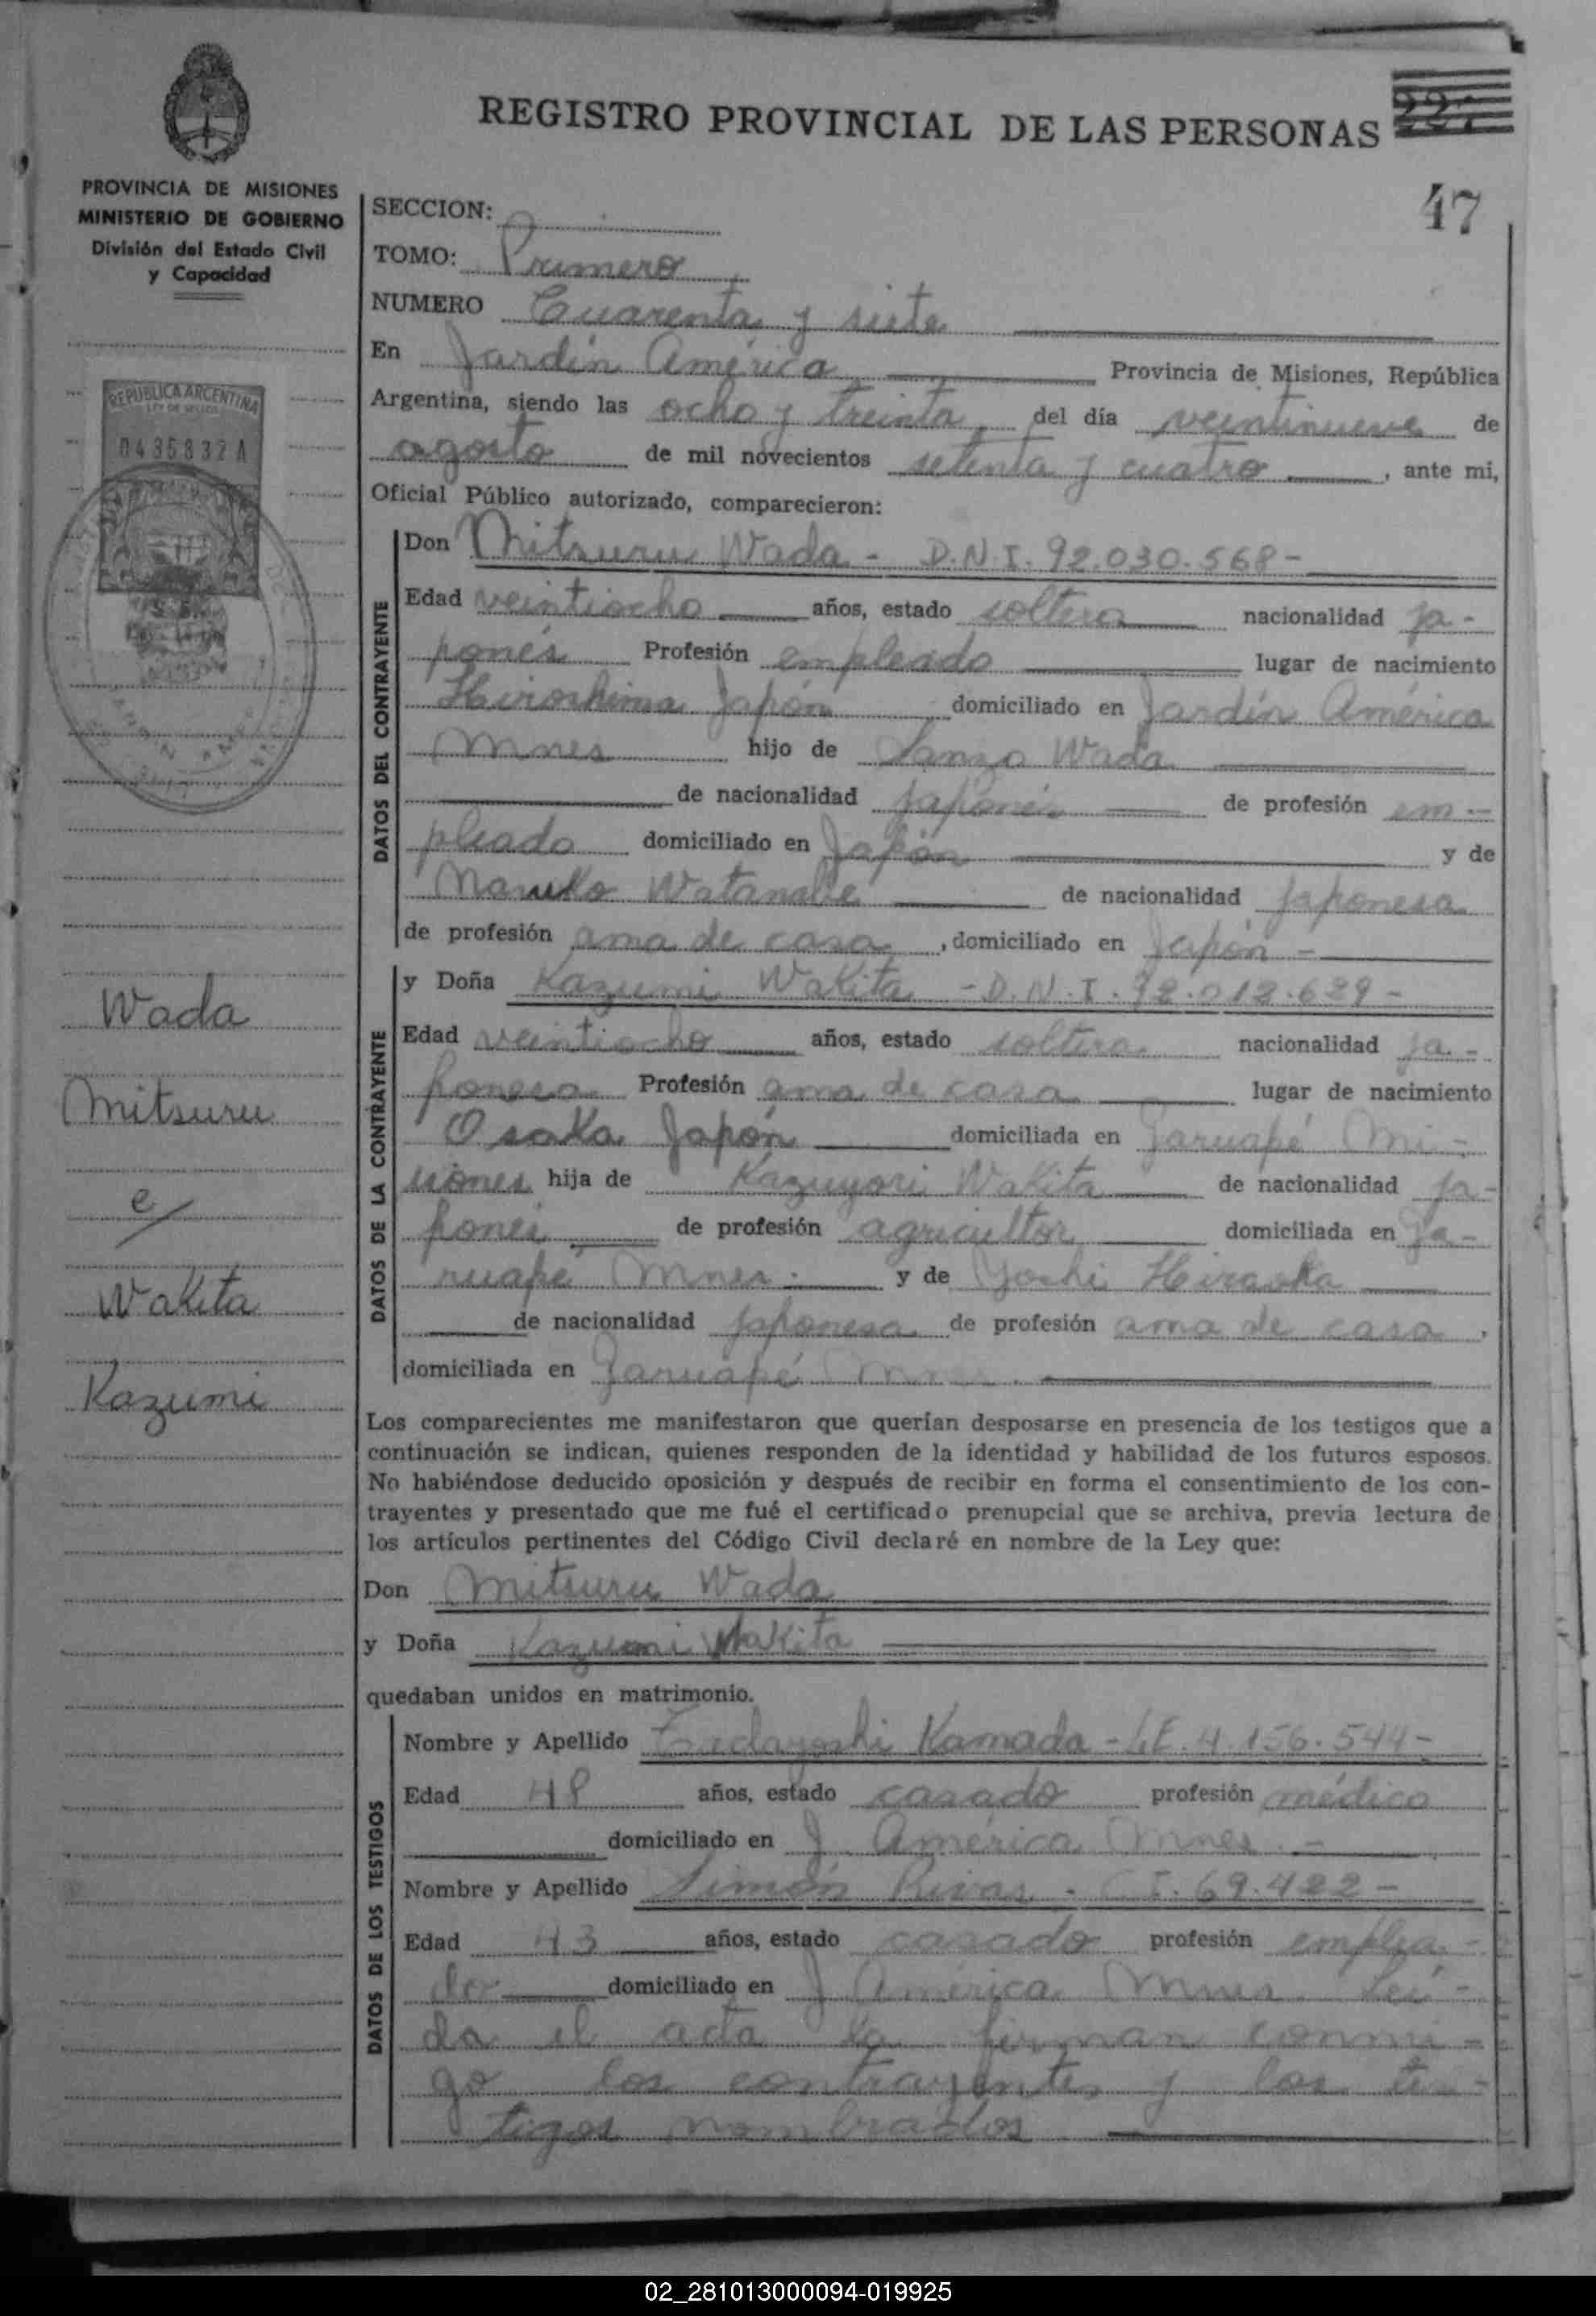 REGISTRO PROVINCIAL DE LAS PERSONAS
47
PROVINCIA DE MISIONES
MINISTERIO DE GOBIERNO
División del Estado Civil
y Capacidad
REPUBLICA ARGENTINA
LEY DE SELLOS
0435832 A
Wada
Mitsuru
e/
Wakita
Kazumi
SECCION:
TOMO: Primero
NUMERO Cuarenta y siete
En Jardín América Provincia de Misiones, República
Argentina, siendo las ocho y treinta del día veintinueve de
agosto de mil novecientos setenta y cuatro, ante mi,
Oficial Público autorizado, comparecieron:
DATOS DEL CONTRAYENTE
Don Mitsuru Wada - D.N.I. 92.030.568-
Edad veintiocho años, estado soltero nacionalidad ja-
ponés Profesión empleado lugar de nacimiento
Hiroshima Japón domiciliado en Jardín América
Mnes hijo de Sanzo Wada
de nacionalidad japonés de profesión em-
pleado domiciliado en Japón y de
Maruko Watanabe de nacionalidad japonesa
de profesión ama de casa, domiciliado en Japón -
DATOS DE LA CONTRAYENTE
y Doña Kazumi Wakita - D.N.I. 92.012.629-
Edad veintiocho años, estado soltera nacionalidad ja-
ponesa Profesión ama de casa lugar de nacimiento
Osaka Japón domiciliada en Garuapé Mi-
siones hija de Kazuyori Wakita de nacionalidad ja-
ponés de profesión agricultor domiciliada en Ga-
ruapé Mnes. y de Yoshi Hiraoka
de nacionalidad japonesa de profesión ama de casa,
domiciliada en Garuapé Mnes.
Los comparecientes me manifestaron que querían desposarse en presencia de los testigos que a
continuación se indican, quienes responden de la identidad y habilidad de los futuros esposos.
No habiéndose deducido oposición y después de recibir en forma el consentimiento de los con-
trayentes y presentado que me fué el certificado prenupcial que se archiva, previa lectura de
los artículos pertinentes del Código Civil declaré en nombre de la Ley que:
Don Mitsuru Wada
y Doña Kazumi Wakita
quedaban unidos en matrimonio.
DATOS DE LOS TESTIGOS
Nombre y Apellido Tadayoshi Kamada - L.E. 4.156.544-
Edad 48 años, estado casado profesión médico
domiciliado en J América Mnes. -
Nombre y Apellido Simón Rivas. C.I. 69.422-
Edad 43 años, estado casado profesión emplea-
do domiciliado en J América Mnes. Leí-
da el acta la firman conmi-
go los contrayentes y los tes-
tigos nombrados
02_281013000094-019925